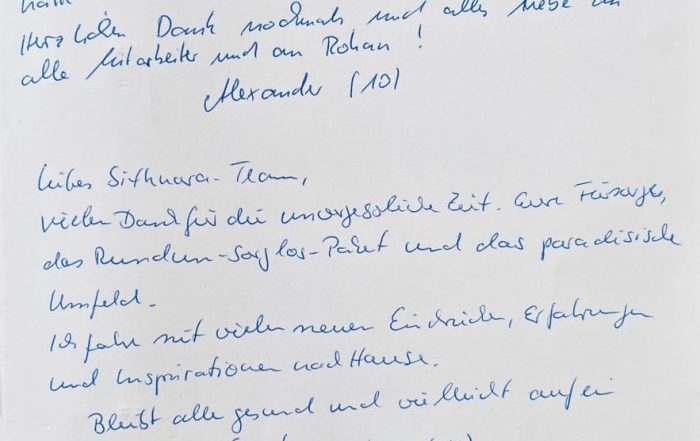 Herzlichen Dank nochmals und alles Liebe an
alle Mitarbeiter und an Rohan!
Alexander (10)
Liebes Sithnara-Team,
vielen Dank für die unvergessliche Zeit. Eure Fürsorge,
das Rundum-Sorglos-Paket und das paradisische
Umfeld.
Ich fahre mit vielen neuen Eindrücken, Erfahrungen
und Inspirationen nach Hause.
Bleibt alle gesund und vielleicht auf ein